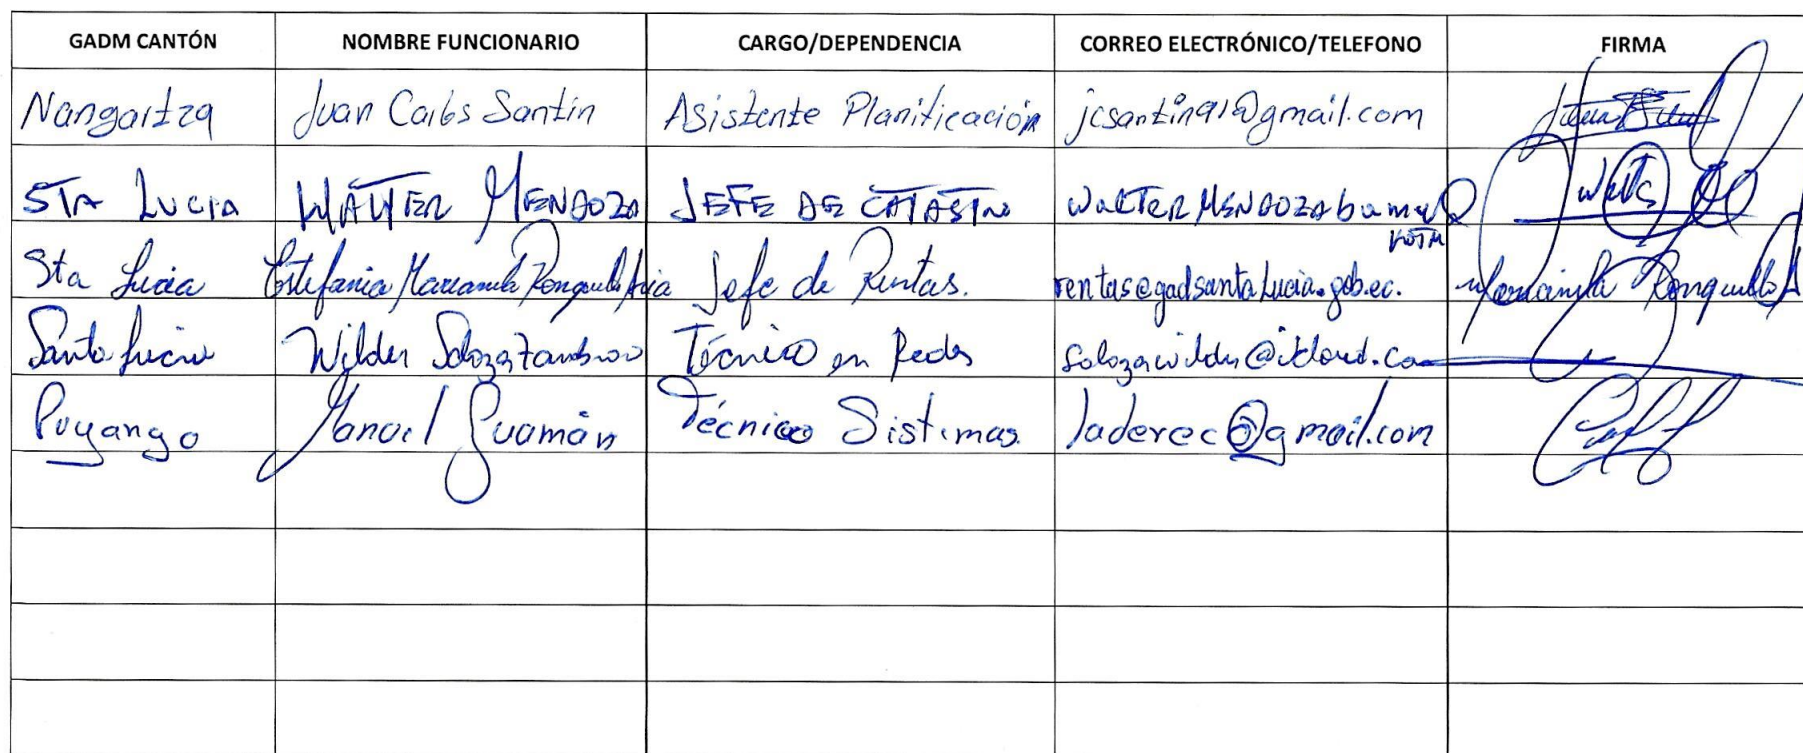 GADM CANTÓN NOMBRE FUNCIONARIO CARGO/DEPENDENCIA CORREO ELECTRÓNICO/TELEFONO FIRMA
Nangaritza Juan Carlos Santin Asistente Planificación jcsantin91@gmail.com
STA LUCIA WALTER MENDOZA JEFE DE CATASTRO
Sta Lucia Estefania Marianela Ronquillo Jefe de Rentas. rentas@gadsantaLucia.gob.ec. Marianela Ronquillo
Santa Lucia Wilder Técnico en Redes
Puyango Manuel Guamán Técnico Sistemas laderec@gmail.com